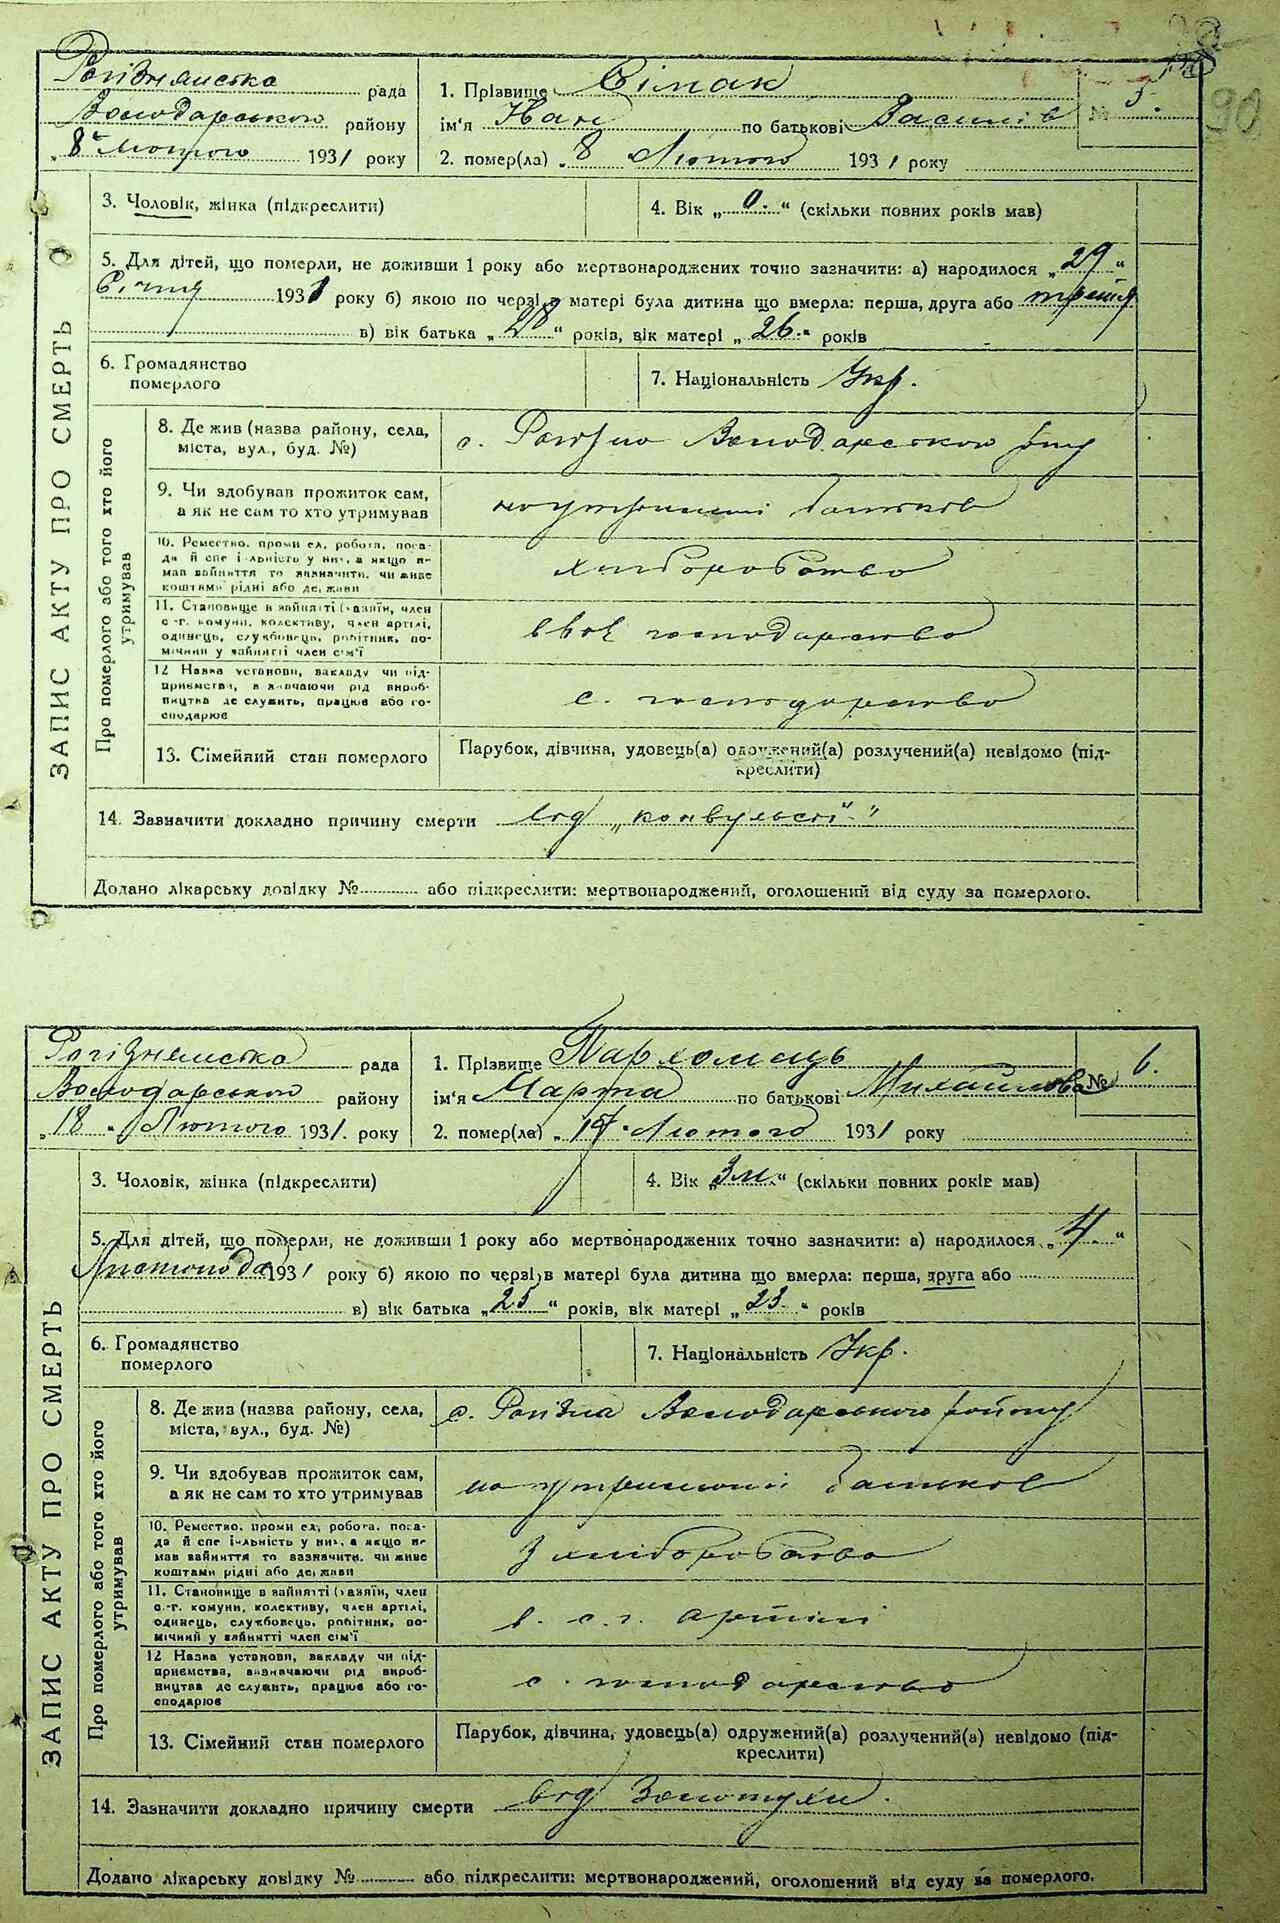 90
Рогізнянська рада
Володарського району
„8го Лютого 1931 року
1. Прізвище Сімак
№ 5.
ім'я Іван по батькові Василів
2. помер(ла) „8 Лютого 1931 року
ЗАПИС АКТУ ПРО СМЕРТЬ
3. Чоловік, жінка (підкреслити)
4. Вік „ 0. “ (скільки повних років мав)
5. Для дітей, що померли, не доживши 1 року або мертвонароджених точно зазначити: а) народилося „29“
Січня 1931 року б) якою по черзі в матері була дитина що вмерла: перша, друга або третя
в) вік батька „28“ років, вік матері „26.“ років
6. Громадянство
померлого
7. Національність Укр.
Про померлого або того хто його
утримував
8. Де жив (назва району, села,
міста, вул., буд. №)
с. Рогізно Володарського р-ну
9. Чи здобував прожиток сам,
а як не сам то хто утримував
на утриманні батьків
10. Ремество, промисел, робота, поса-
да й спеціяльність у ній, а якщо не
мав зайняття то зазначити, чи живе
коштами рідні або держави
хліборобство
11. Становище в зайнятті (хазяїн, член
с.-г. комуни, колективу, член артілі,
одинець, службовець, робітник, по-
мічний у зайнятті член сім'ї
госплодарство
12 Назва установи, закладу чи під-
приємства, визначаючи рід вироб-
ництва де служить, працює або го-
сподарює
с. господарство
13. Сімейний стан померлого
Парубок, дівчина, удовець(а) одружений(а) розлучений(а) невідомо (під-
креслити)
14. Зазначити докладно причину смерти від „конвульсії“
Додано лікарську довідку № або підкреслити: мертвонароджений, оголошений від суду за померлого.
Рогізнянська рада
Володарського району
„18“ Лютого 1931. року
1. Прізвище Пархомець
№ 6.
ім'я Марта по батькові Михайлова
2. помер(ла) „17. Лютого 1931 року
ЗАПИС АКТУ ПРО СМЕРТЬ
3. Чоловік, жінка (підкреслити)
4. Вік „3м.“ (скільки повних років мав)
5. Для дітей, що померли, не доживши 1 року або мертвонароджених точно зазначити: а) народилося „4.“
Листопода 1931 року б) якою по черзі в матері була дитина що вмерла: перша, друга або
в) вік батька „25“ років, вік матері „23.“ років
6. Громадянство
померлого
7. Національність Укр.
Про померлого або того хто його
утримував
8. Де жив (назва району, села,
міста, вул., буд. №)
с. Рогізна Володарського району
9. Чи здобував прожиток сам,
а як не сам то хто утримував
на утриманні батьків
10. Ремество, промисел, робота, поса-
да й спеціяльність у ній, а якщо не
мав зайняття то зазначити, чи живе
коштами рідні або держави
З хліборобства
11. Становище в зайнятті (хазяїн, член
с.-г. комуни, колективу, член артілі,
одинець, службовець, робітник, по-
мічний у зайнятті член сім'ї
в. с. г. артілі
12 Назва установи, закладу чи під-
приємства, визначаючи рід вироб-
ництва де служить, працює або го-
сподарює
с. господарство
13. Сімейний стан померлого
Парубок, дівчина, удовець(а) одружений(а) розлучений(а) невідомо (під-
креслити)
14. Зазначити докладно причину смерти від Золотухи.
Додано лікарську довідку № або підкреслити: мертвонароджений, оголошений від суду за померлого.